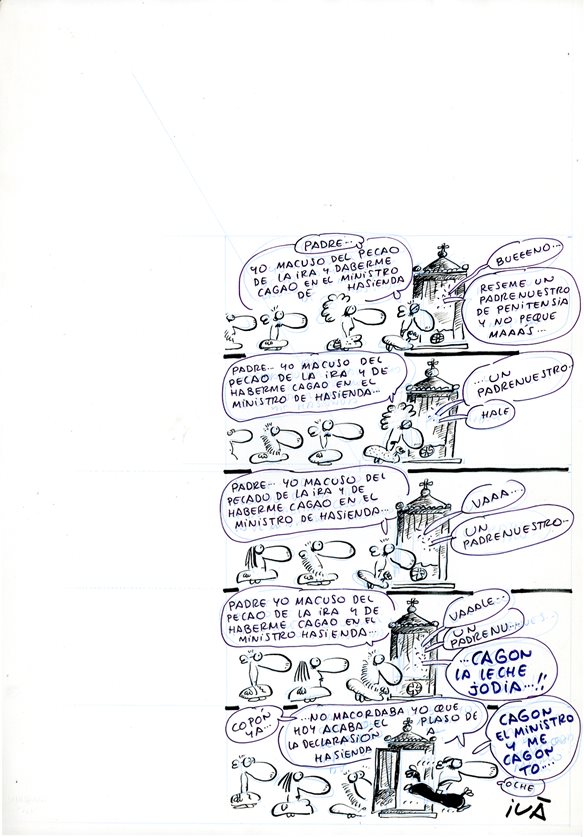 PADRE...
YO MACUSO DEL PECAO
DE LA IRA Y DABERME
CAGAO EN EL MINISTRO
DE HASIENDA
BUEEENO...
RESEME UN
PADRENUESTRO
DE PENITENSIA
Y NO PEQUE
MAAÁS...
PADRE... YO MACUSO DEL
PECAO DE LA IRA Y DE
HABERME CAGAO EN EL
MINISTRO DE HASIENDA...
...UN
PADRENUESTRO..
HALE
PADRE... YO MACUSO DEL
PECADO DE LA IRA Y DE
HABERME CAGAO EN EL
MINISTRO DE HASIENDA...
VAAA...
UN
PADRENUESTRO...
PADRE YO MACUSO DEL
PECAO DE LA IRA Y DE
HABERME CAGAO EN EL
MINISTRO HASIENDA...
VAAALE...
UN
PADRENU...
...CAGON
LA LECHE
JODIA...!!
COPÓN
YA...
...NO MACORDABA YO QUE
HOY ACABA EL PLASO DE
LA DECLARASIÓN A
HASIENDA
CAGON
EL MINISTRO
Y ME
CAGON
TO....
OCHE
iVÀ